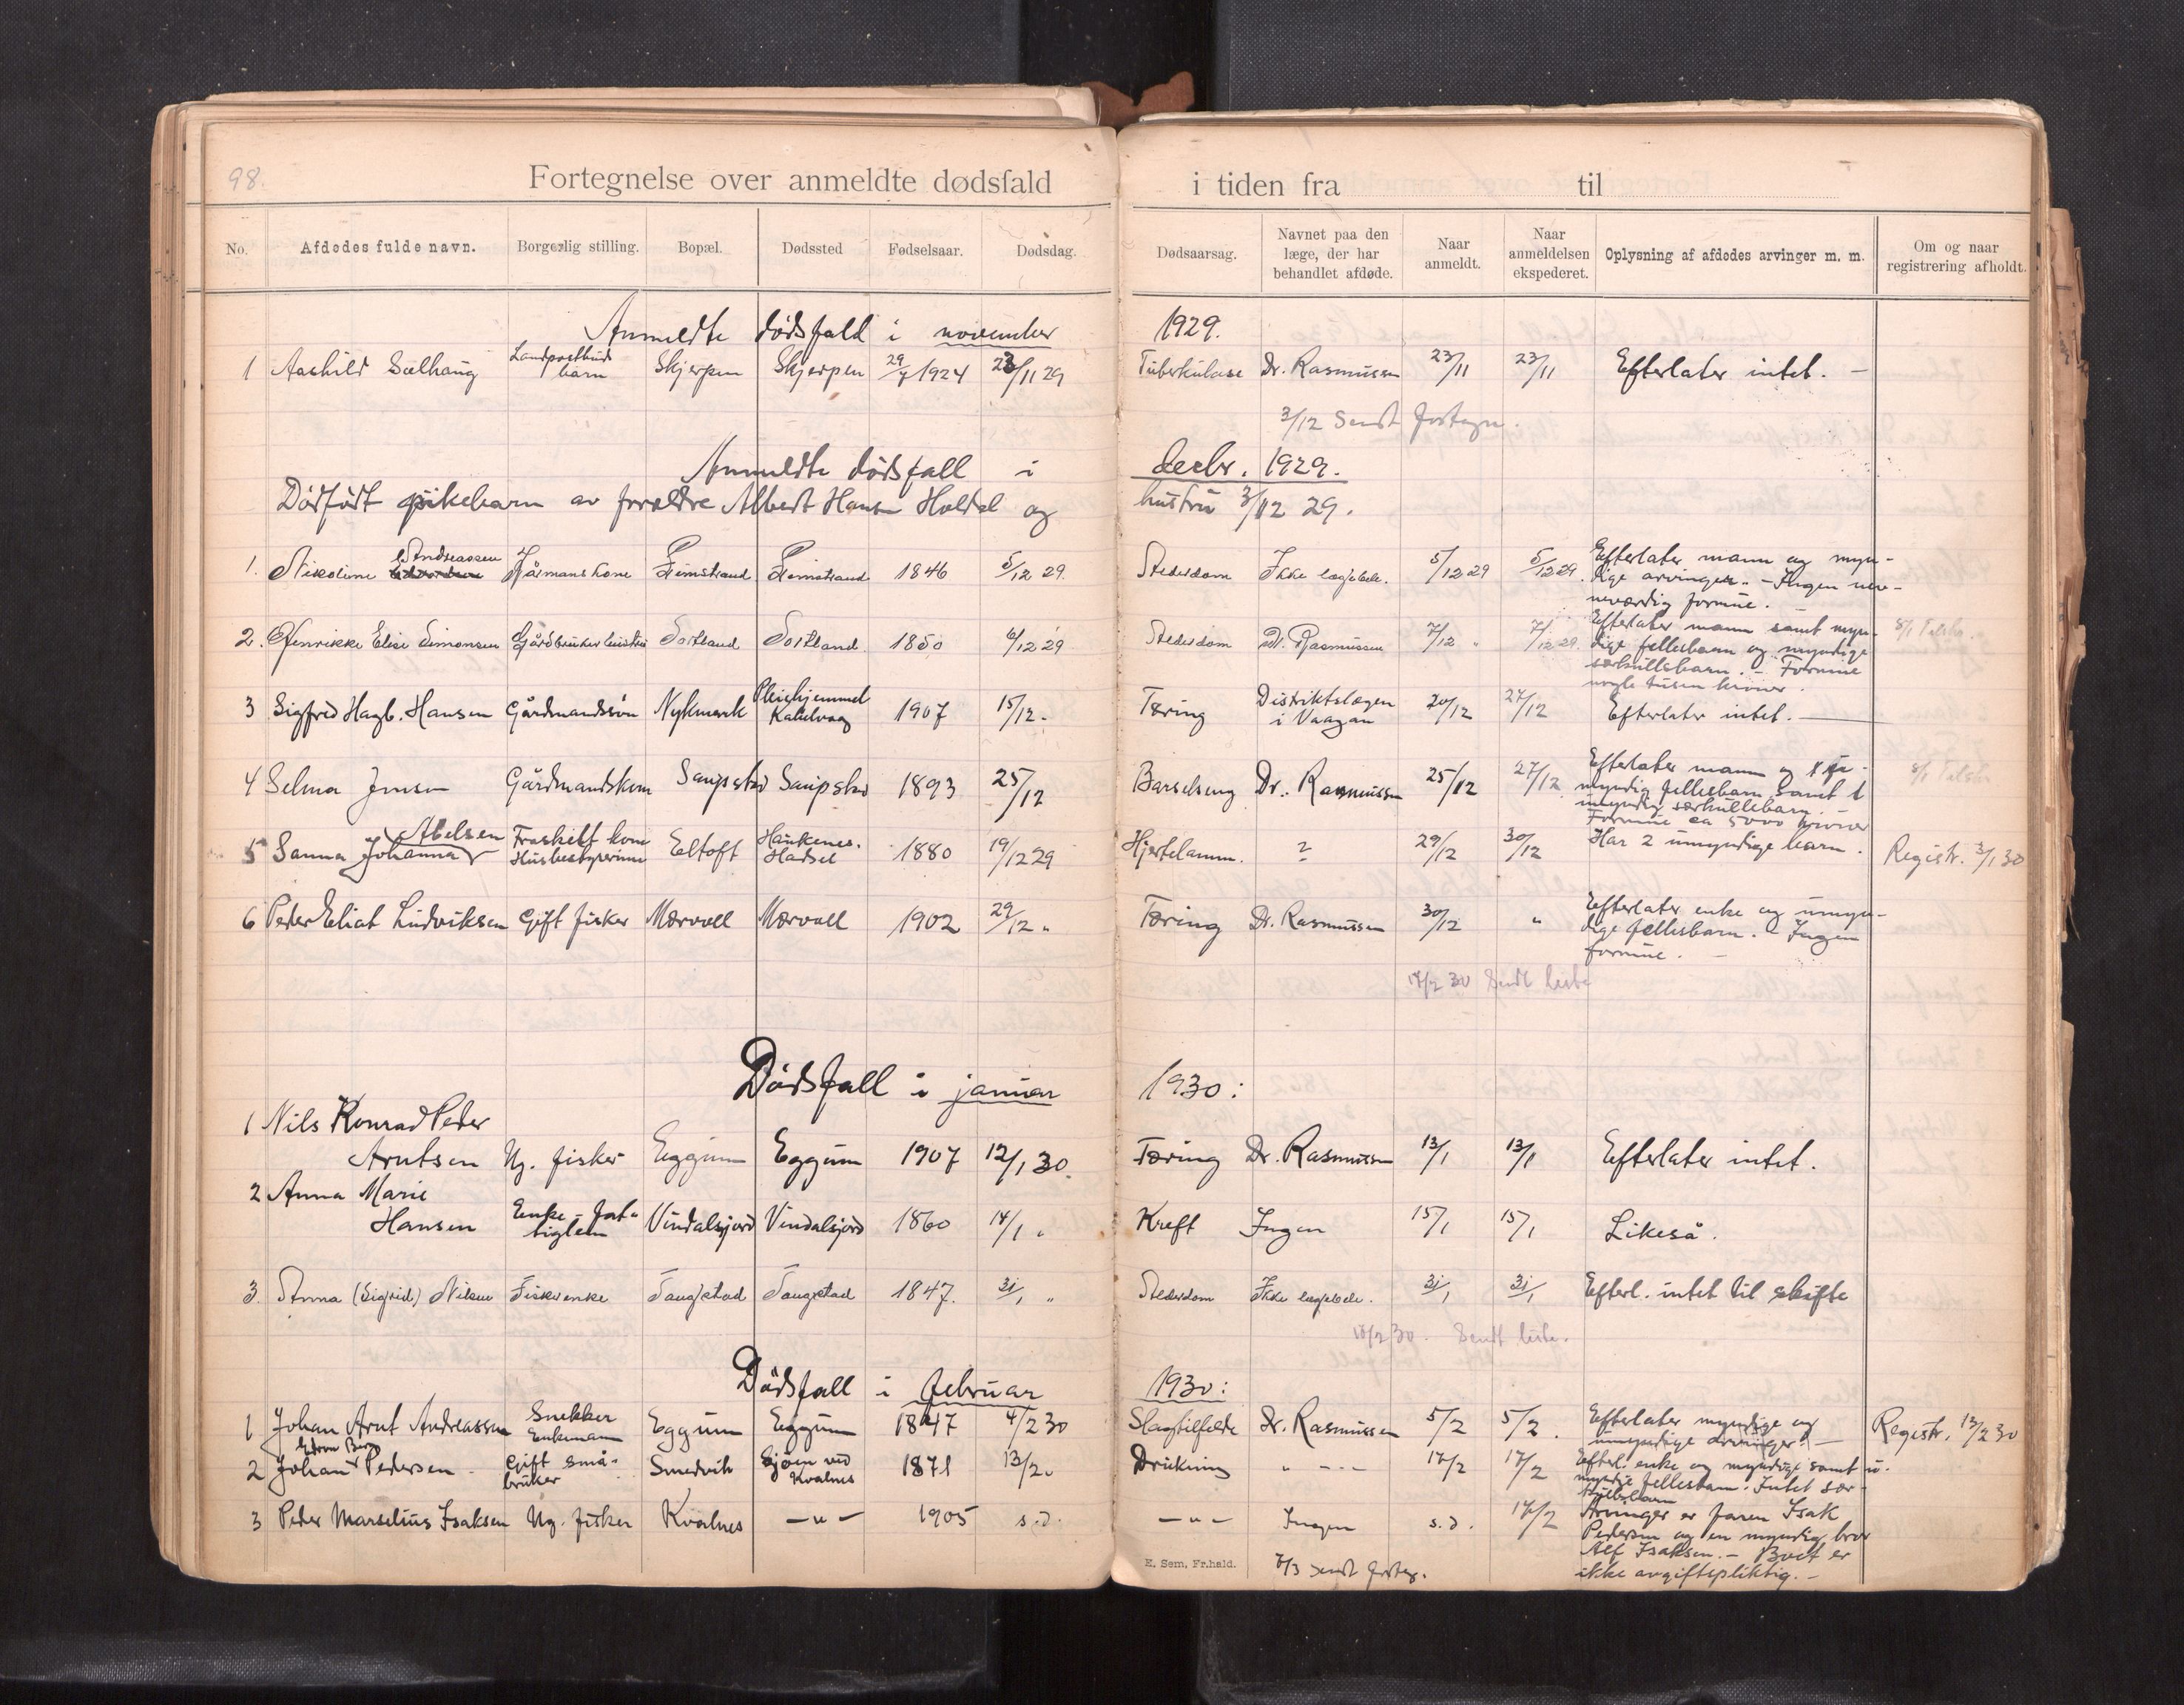 98.
Fortegnelse over anmeldte dødsfald i tiden fra til
No. Afdødes fulde navn. Borgerlig stilling. Bopæl. Dødssted Fødselsaar. Dødsdag. Dødsaarsag. Navnet paa den læge, der har behandlet afdøde. Naar anmeldt. Naar anmeldelsen ekspederet. Oplysning af afdødes arvinger m. m. Om og naar registrering afholdt.
Anmeldte dødsfald i november 1929.
1 Aashild Sælhaug Landpostbuds barn Skjerpen Skjerpen 29/7 1924 23/11 29 Tuberkulose Dr. Rasmussen 23/11 23/11 Efterlater intet. —
3/12 Sendt fortegn.
Anmeldte dødsfall i decbr. 1929.
Dødfødt pikebarn av foreldre Albert Hansen Holdal og hustru 3/12 29.
1. Nikoline Andreassen Gårmans kone Fimstrand Fimstrand 1846 5/12 29. Alderdom Ikke lægebeh. 5/12 29 5/12 29. Efterlater mann og myn-
dige arvinger. – Ingen nev-
neverdig formue.
2. Henrikke Elise Simonsen Gårdbruker hustru Sortland Sortland. 1850 6/12 29 Alderdom Dr. Rasmussen 7/12 " 7/12 29. Efterlater mann samt myn-
dige fellesbarn og myndige
særkullsbarn. – Formue
nogle tusen kroner.
8/1
3 Sigfred Hagb. Hansen Gårdmandssøn Nykmark Pleiehjemmet Kabelvaag 1907 15/12 - Tæring Distriktslægen i Vaagan 20/12 27/12 Efterlater intet. —
4 Selma Jensen Gårdmandskone Saupstad Saupstad 1893 25/12 Barselseng Dr. Rasmussen 25/12 27/12 Efterlater mann og 1 u-
myndig fellesbarn samt 1
umyndig særkullebarn. –
Formue ca 5000 kroner
8/1
5 Sanna Johanna Abelsen Fraskilt kone Husbestyrerinne Eltoft Haukenes. Hadsel 1880 19/12 29 Hjertelamm. ? 29/12 30/12 Har 2 umyndige barn. Registr. 3/1 30
6 Peder Eliat Ludviksen Gift fisker Mærvoll Mærvoll 1902 29/12 " Tæring Dr. Rasmussen 30/12 " Efterlater enke og umyn-
dige fellesbarn. – Ingen
formue. –
14/2 30 Sendt liste
Dødsfall i januar 1930:
1 Nils Konrad Peder
Arntsen Ug. fisker Eggum Eggum 1907 12/1 30. Tæring Dr. Rasmussen 13/1 13/1 Efterlater intet.
2 Anna Marie
Hansen Enke - fat-
tiglem Vindalsjord Vindalsjord 1860 14/1 " Kreft Ingen 15/1 15/1 Likeså.
3. Anna (Sigrid) Nilsen Fiskerenke Tangstad Tangstad 1847. 31/1 " Alderdom Ikke lægebeh. 31/1 31/1 Efterl. intet til skifte
18/2 30. Sendt liste.
Dødsfall i februar 1930:
1 Johan Arnt Andreassen Snekker Enkemann Eggum Eggum 1847 4/2 30 Slagtilfelde Dr. Rasmussen 5/2 5/2. Efterlater myndige og
umyndige arvinger. — Registr. 13/2 30
2 Johan Edvin Berg Pedersen - Gift små-
bruker Smedvik Sjøen ved Kvalnes 1871 13/2 " Drukning " - - - 17/2 17/2 Efterl. enke og myndige samt u-
myndige fellesbarn. Intet sær-
kullsbarn
3 Peder Marselius Isaksen Ug. fisker Kvalnes — " — 1905 s.d. — " — Ingen s.d. 17/2 Arvinger er faren Isak
Pedersen og en myndig bror
Alf Isaksen. – Boet er
ikke avgiftspliktig. –
E. Sem, Fr.hald.
7/3 sendt forteg.